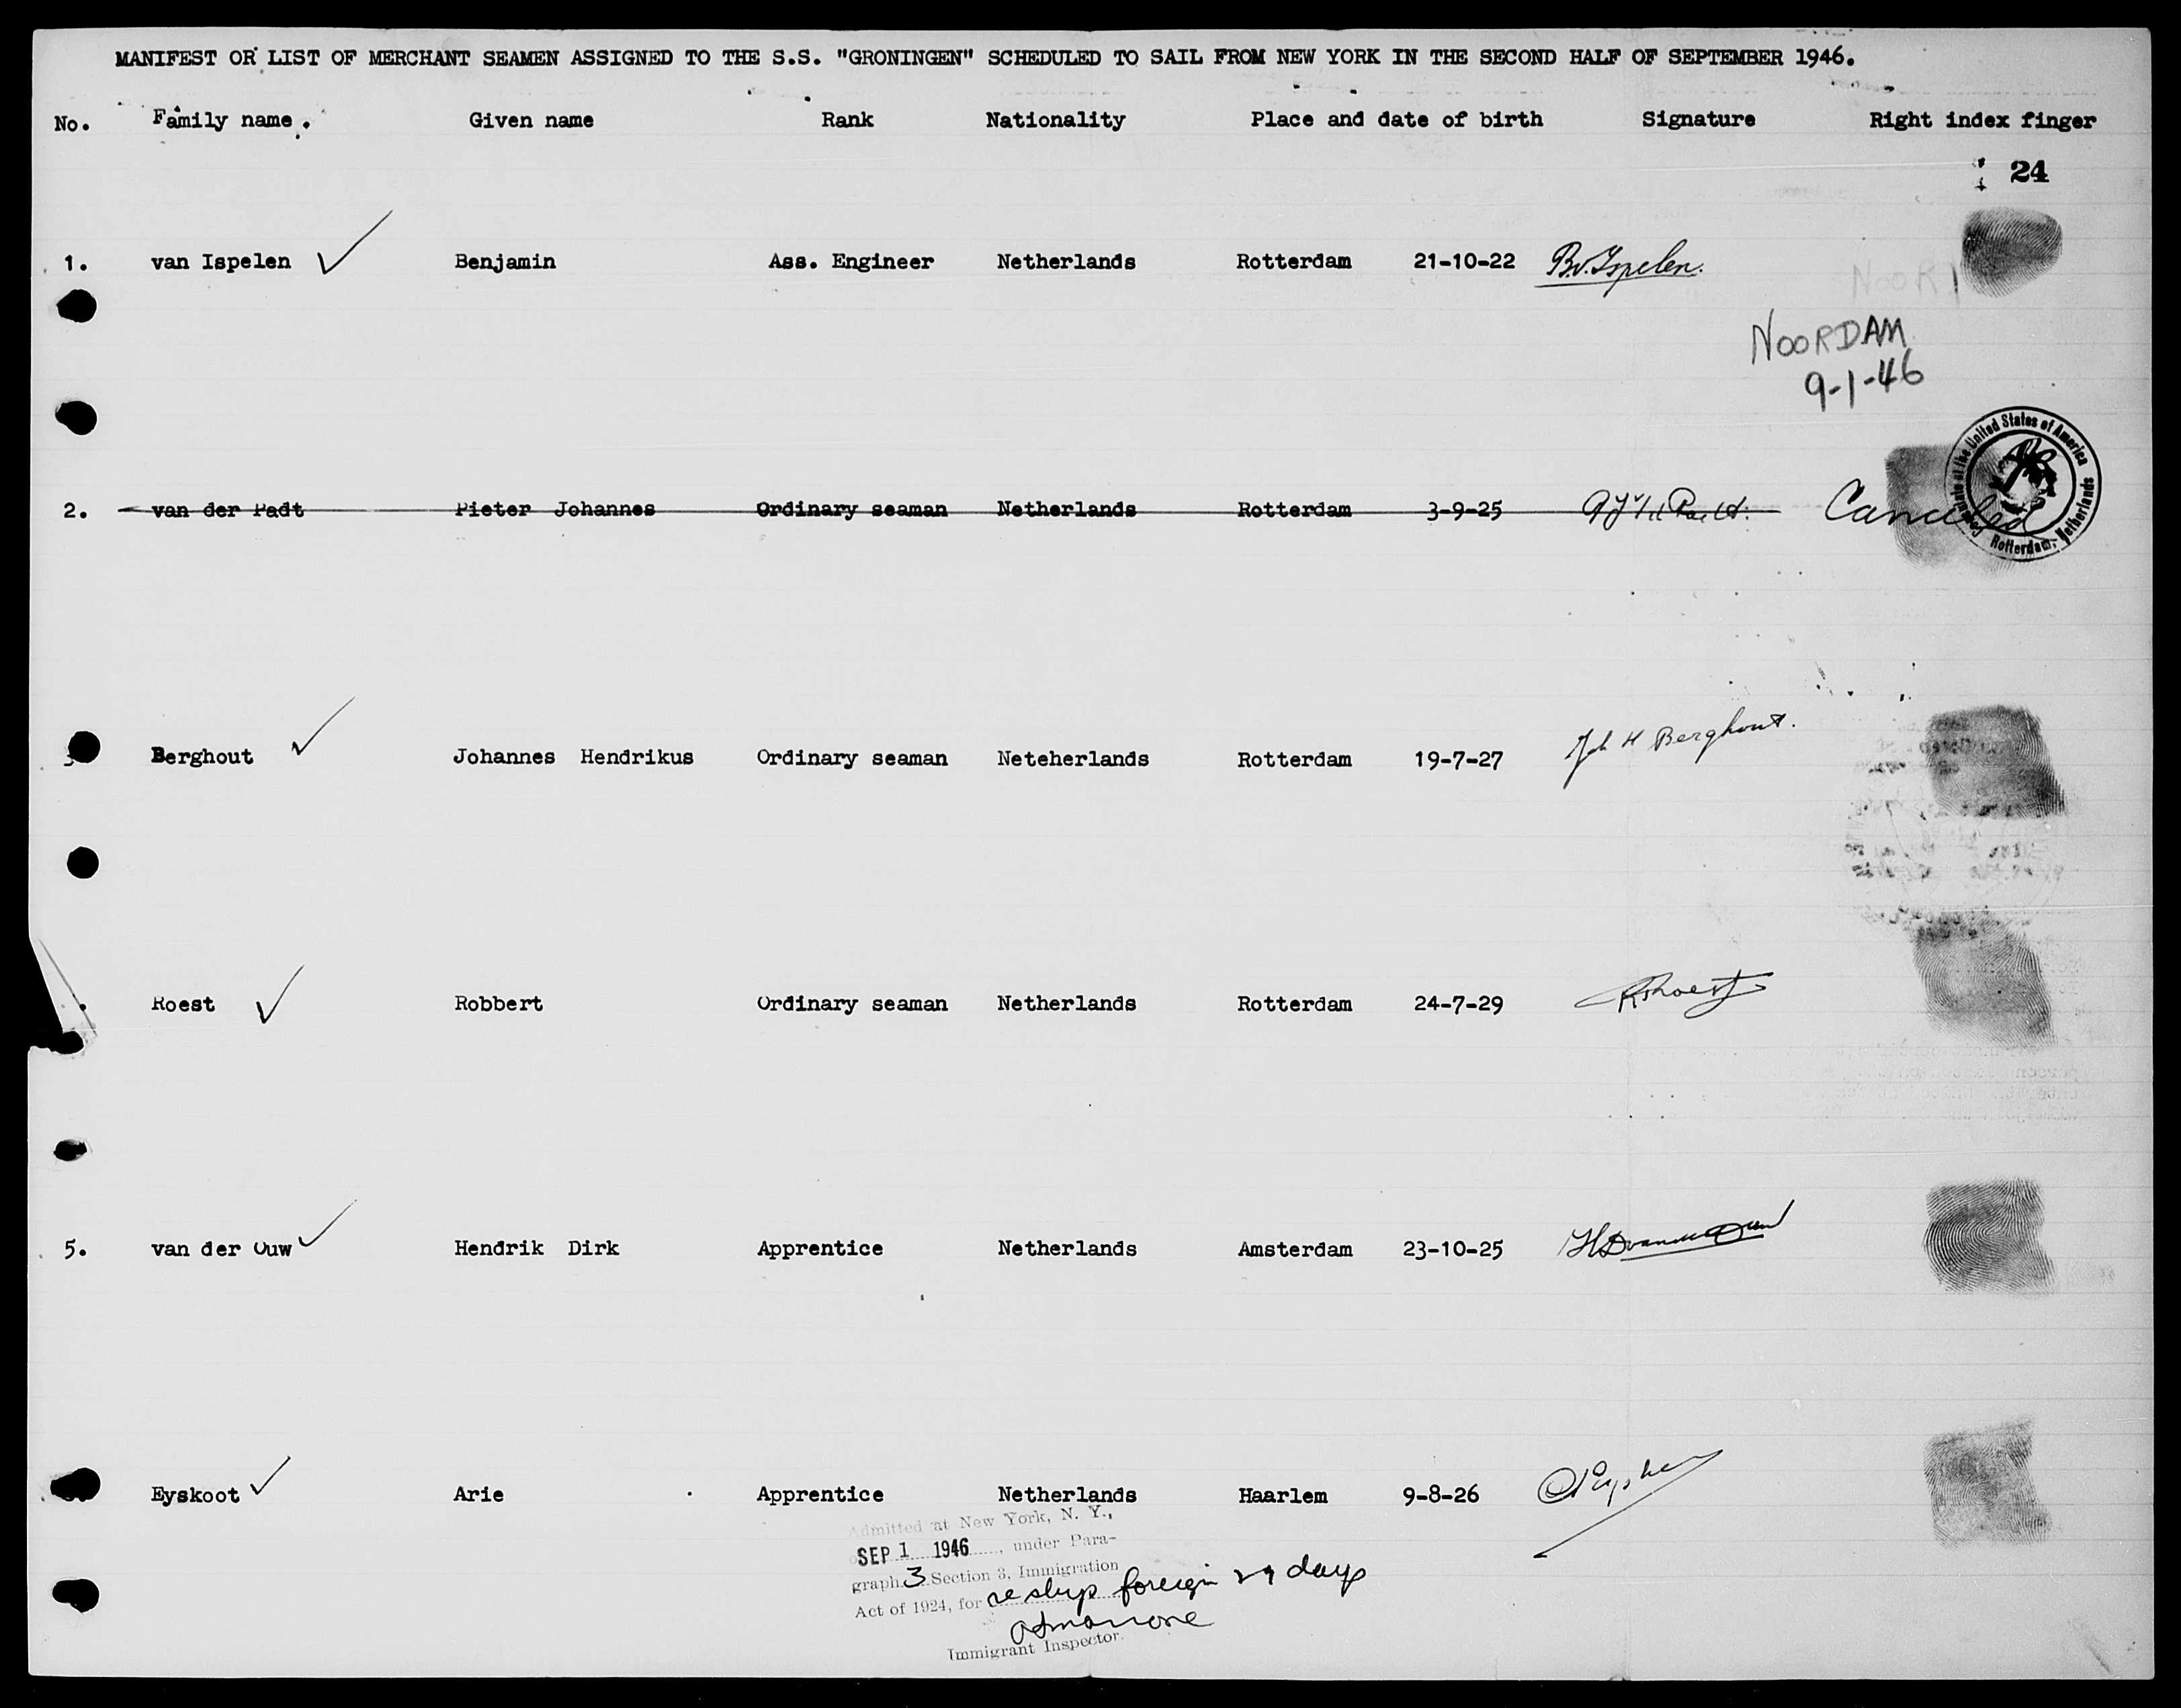 MANIFEST OR LIST OF MERCHANT SEAMEN ASSIGNED TO THE S.S. "GRONINGEN" SCHEDULED TO SAIL FROM NEW YORK IN THE SECOND HALF OF SEPTEMBER 1946.
No. Family name. Given name Rank Nationality Place and date of birth Signature Right index finger
24
1. van Ispelen Benjamin Ass. Engineer Netherlands Rotterdam 21-10-22 B.v.Ispelen.
NOOR
NOORDAM
9-1-46
2. van der Padt Pieter Johannes Ordinary seaman Netherlands Rotterdam 3-9-25 Canceled
of the United States of America
Rotterdam, Netherlands
Berghout Johannes Hendrikus Ordinary seaman Neteherlands Rotterdam 19-7-27 Joh H Berghout.
Roest Robbert Ordinary seaman Netherlands Rotterdam 24-7-29 R Roest
5. van der Ouw Hendrik Dirk Apprentice Netherlands Amsterdam 23-10-25
Eyskoot Arie Apprentice Netherlands Haarlem 9-8-26
Admitted at New York, N. Y.,
SEP 1 1946, under Para-
graph 3 Section 3, Immigration
Act of 1924, for reship foreign 29 days
Immigrant Inspector.